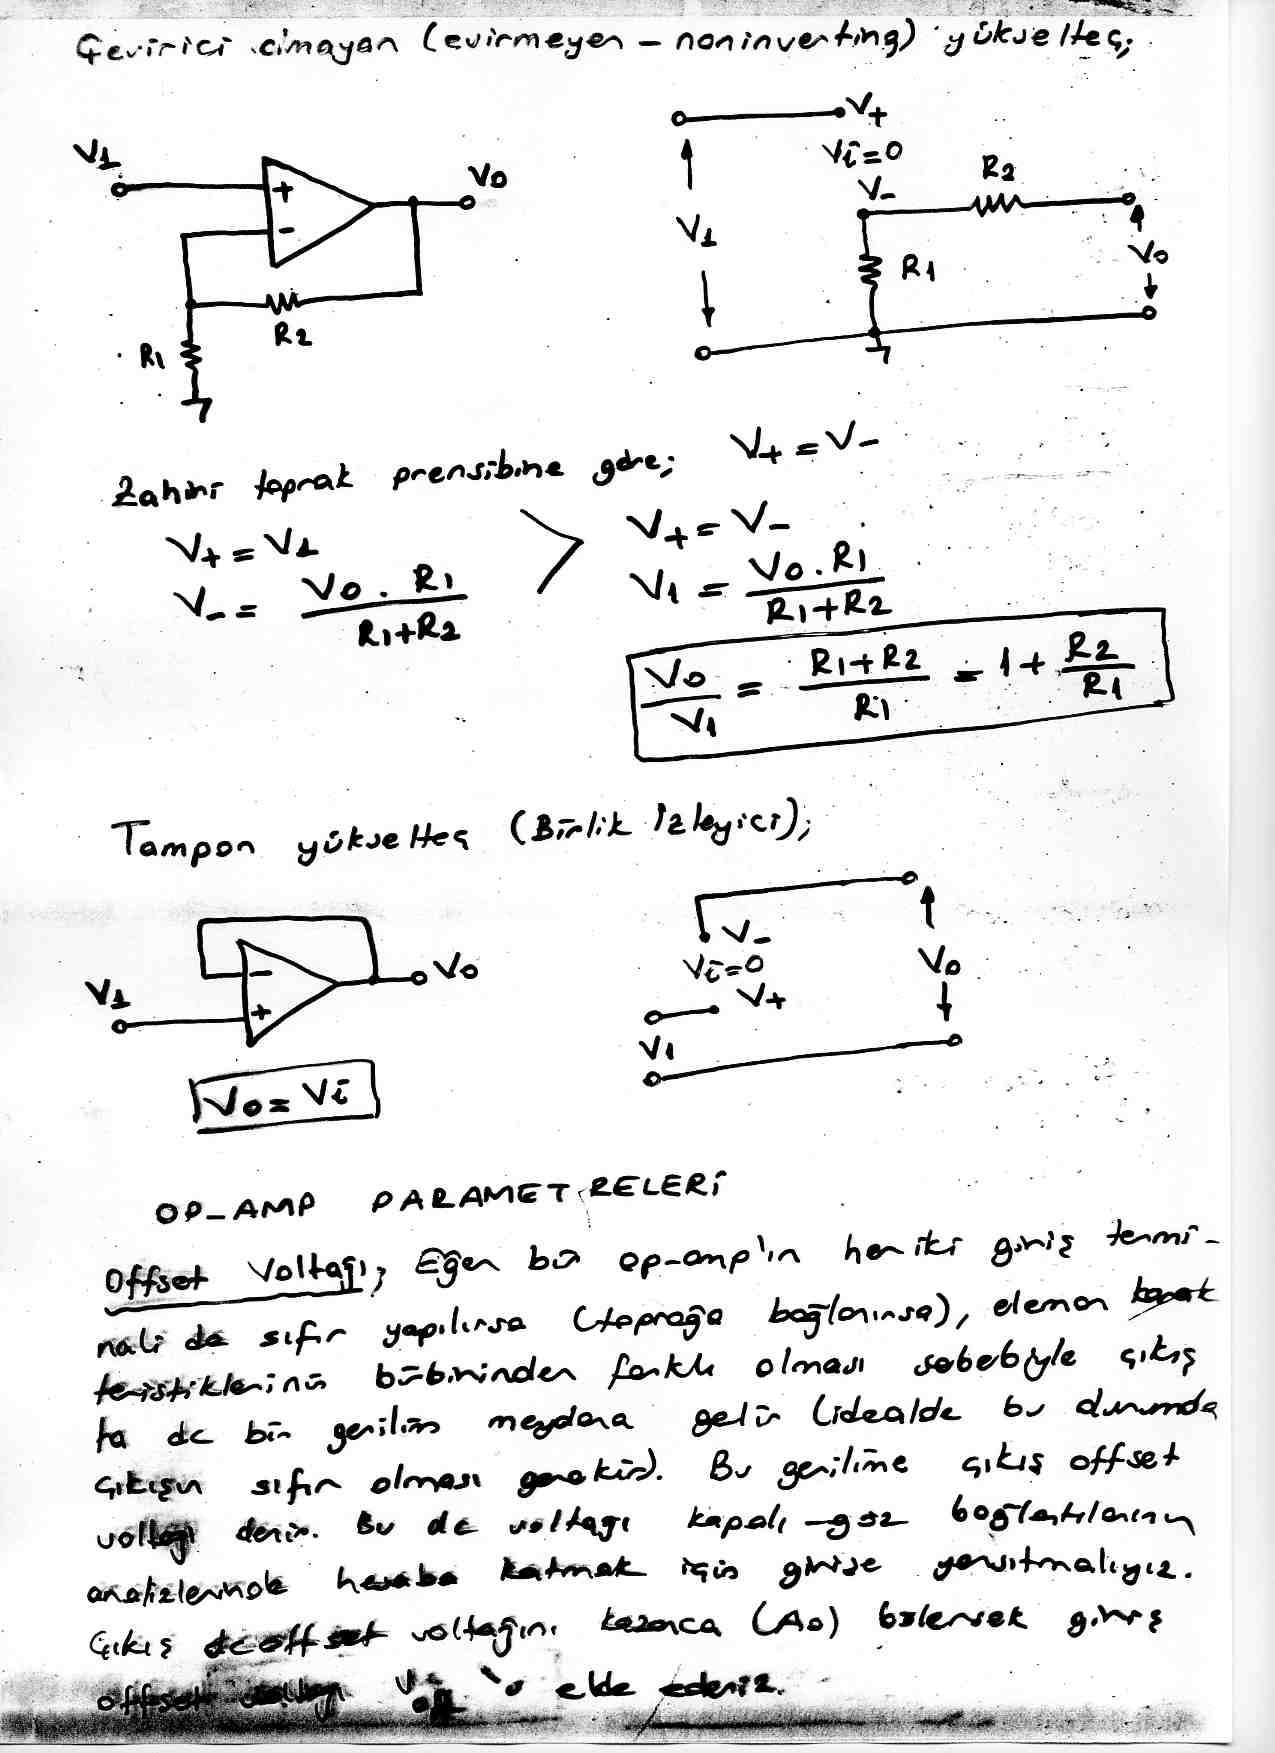 Çevirici olmayan (evirmeyen - noninverting) yükselteç;
V1 + - V0 R2 R1
V+ Vi=0 V- R2 R1 V1 V0
Zahiri toprak prensibine göre; V+ = V-
V+ = V1
V- = V0 . R1 / R1+R2
V+ = V-
V1 = V0 . R1 / R1+R2
V0 / V1 = R1+R2 / R1 = 1 + R2 / R1
Tampon yükselteç (Birlik İzleyici);
V1 - + V0
V0 = Vi
V- Vi=0 V+ V1 V0
OP-AMP PARAMETRELERİ
Offset Voltajı; Eğer bir op-amp'ın her iki giriş termi-
nali de sıfır yapılırsa (toprağa bağlanırsa), eleman karak
teristiklerinin birbirinden farklı olması sebebiyle çıkış
ta dc bir gerilim meydana gelir (idealde bu durumda
çıkışın sıfır olması gerekir). Bu gerilime çıkış offset
voltajı denir. Bu dc voltajı kapalı-göz bağlantılarının
analizlerinde hesaba katmak için girişe yansıtmalıyız.
Çıkış dc offset voltajını kazanca (A0) bölersek giriş
offset voltajı elde ederiz.